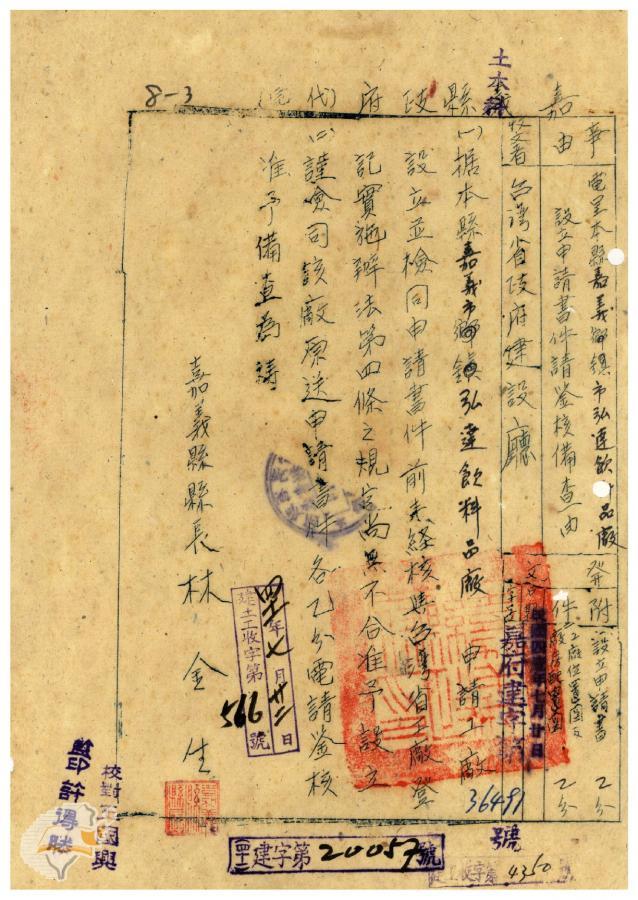 土木科
嘉義縣政府(代電)
8-3
事由
電呈本縣嘉義鄉鎮市弘達飲料品廠
設立申請書件請鑒核備查由
附件
設立申請書 乙份
工廠位置圖及
乙份
受文者
台灣省政府建設廳
嘉府建字第
36491
號
(一)據本縣嘉義市鄉鎮弘達飲料品廠 申請工廠
設立並檢同申請書件前來經核與台灣省工廠登
記實施辦法第四條之規定尚無不合准予設立
(二)謹檢同該廠原送申請書件各乙份電請鑒核
准予備查為禱
嘉義縣縣長林金生
建土工收字第
566
號
年七月廿二日
校對王國興
監印許得勝
(四十二)建字第20057號
4350